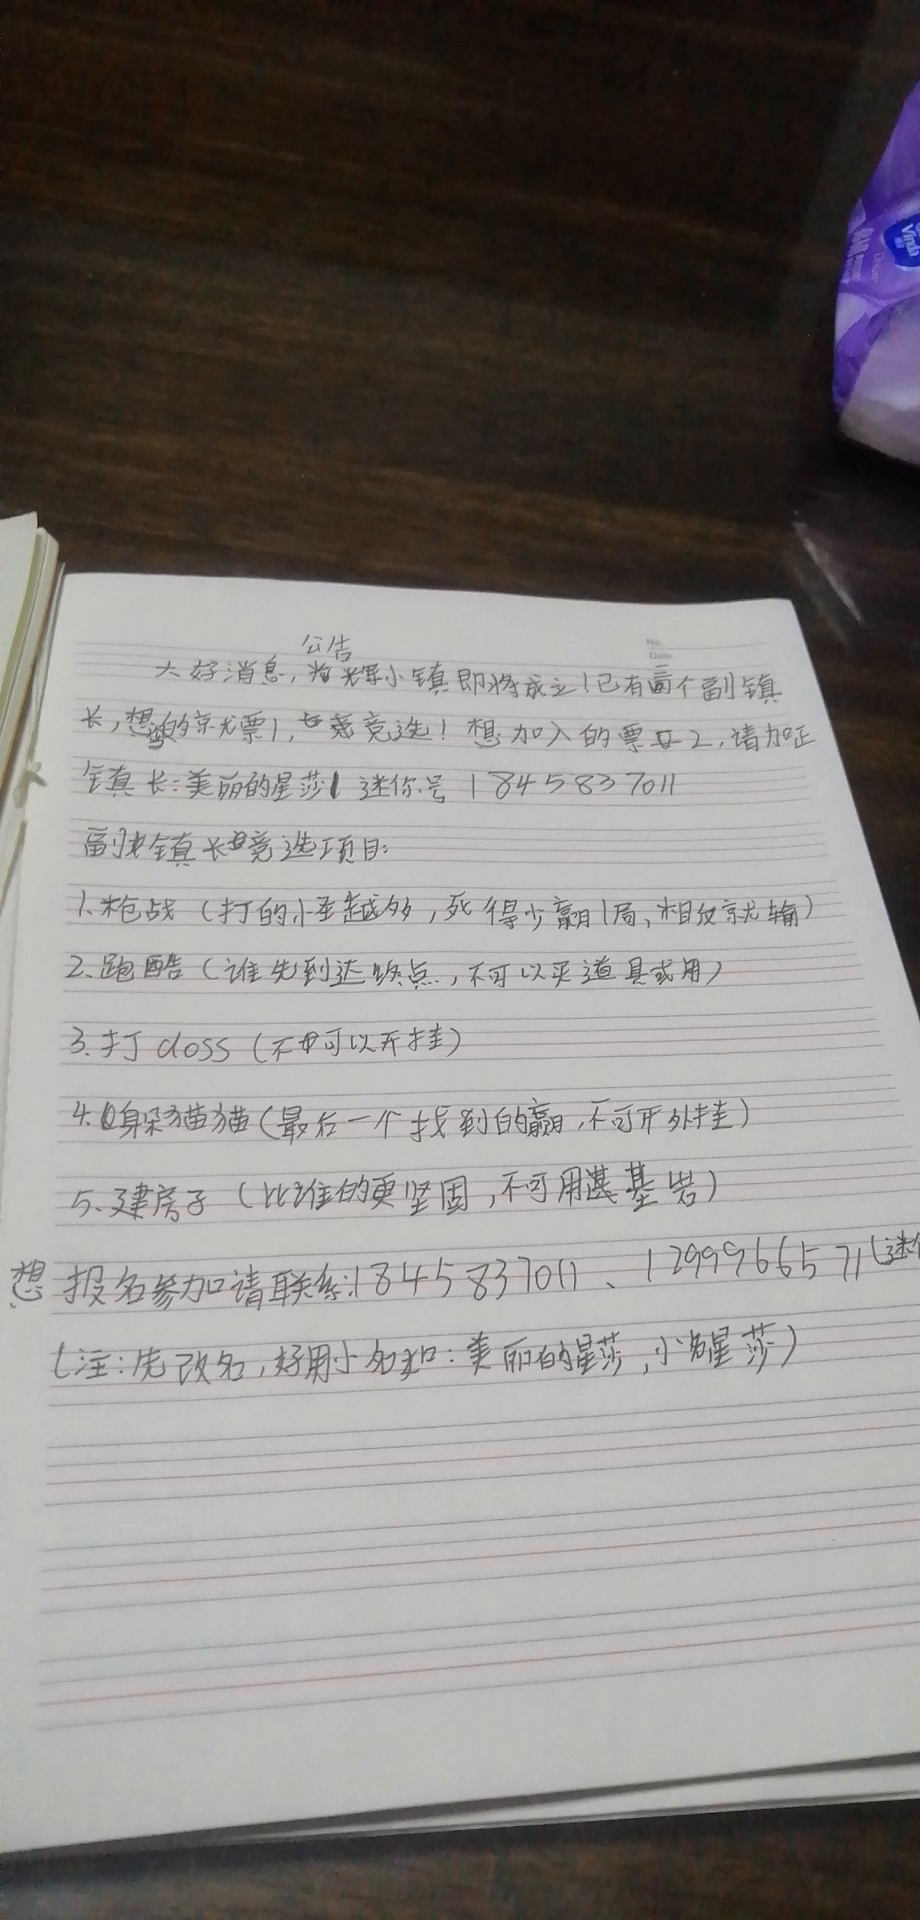 公告
No.
Date
大好消息，辉小镇即将成立！已有两个副镇
长，想的就票1，竞选！想加入的票2，请加正
镇长：美丽的星莎 迷你号 1845837011
副镇长竞选项目：
1.枪战（打的越多，死得少赢1局，相反就输）
2.跑酷（谁先到达终点，不可以买道具或用）
3.打doss（不可以开挂）
4.躲猫猫（最后一个找到的赢，不可开外挂）
5.建房子（比谁的更坚固，不可用基岩）
想报名参加请联系：1845837011、1299966571（迷
（注：先改名，好用小名如：美丽的星莎，小星莎）
Vinda